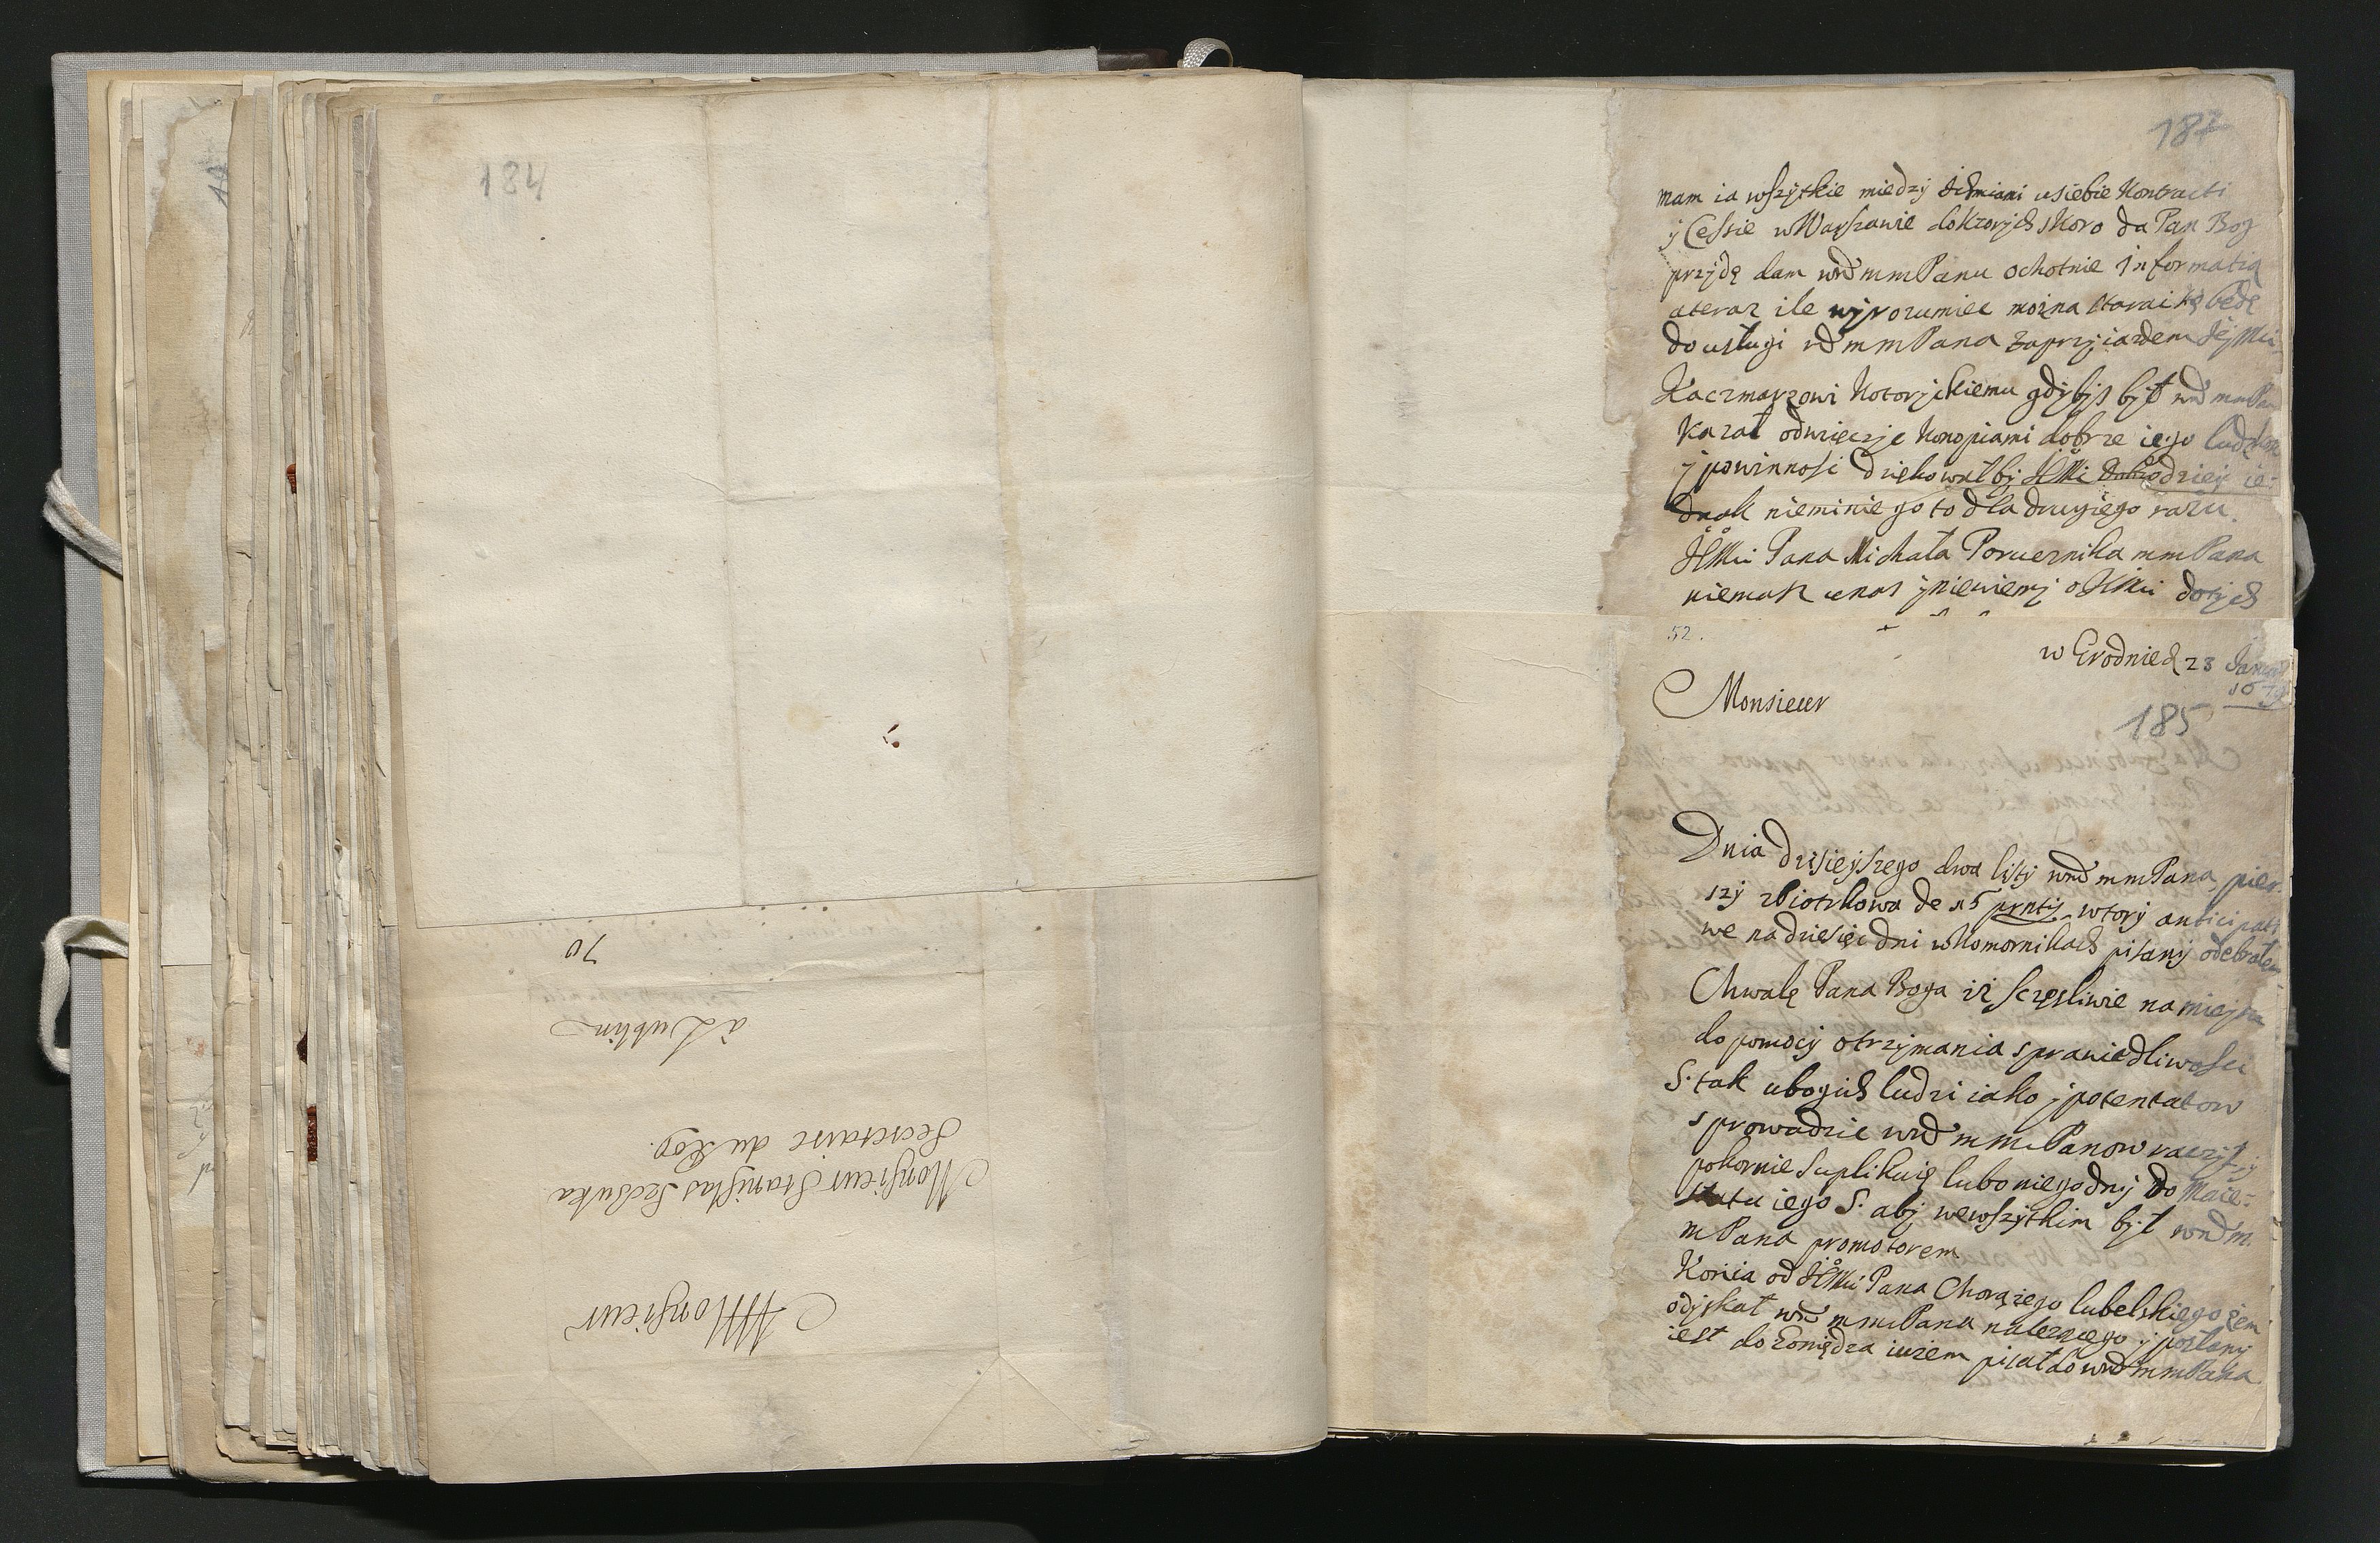 184
70
à Lublin
Secretaire du Roy.
Monsieur Stanislas Szczuka
Monsieur
187
mam ia wszytkie miedzy usiebie Kontracti
y Cessie w Warszawie do ktorych skoro da Pan Bog
przydę dam wmd mm Panu ochotnie Informatią
ateraz ile wyrozumiec mozna starac się bedę
do usługi wmd mm Pana zaprzyiazdem
Kaczmarzowi Kotoryckiemu gdybys był wmd mm Pan
Kazał odwięczyc Konopiami dobrze iego ludzkosc
y powinnosc dziękowałby JEMci Dobrodziey ie=
dnak nieminie go to dla drugiego razu.
JEMci Pana Michała Porucznika mm Pana
niemasz unas y niewiemy o JEMci dotych
52.
w Grodnie d 28 Januar
167
Monsieur
185
Dnia dzisieyszego dwa listy wmd mm Pana, pier=
szy z Piotrkowa de 15 prntis wtory
we na dziesięc dni w Komornikach pisany odebrałem
Chwalę Pana Boga iż sczęsliwie na mieysce
do pomocy otrzymania sprawiedliwosci
S. tak ubogich ludzi iako y potentatow
sprowadzic wmd mm Panow raczył y
pokornie suplikuię lubo niegodny do Maie=
statu iego S. aby we wszytkim był wmd m
m Pana promotorem
Konia od JEMci Pana Chorążego lubelskiego żem
odyskał wmd mm Panu nalezącego y posłany
iest do Łomędza iużem pisał do wmd mm Pana